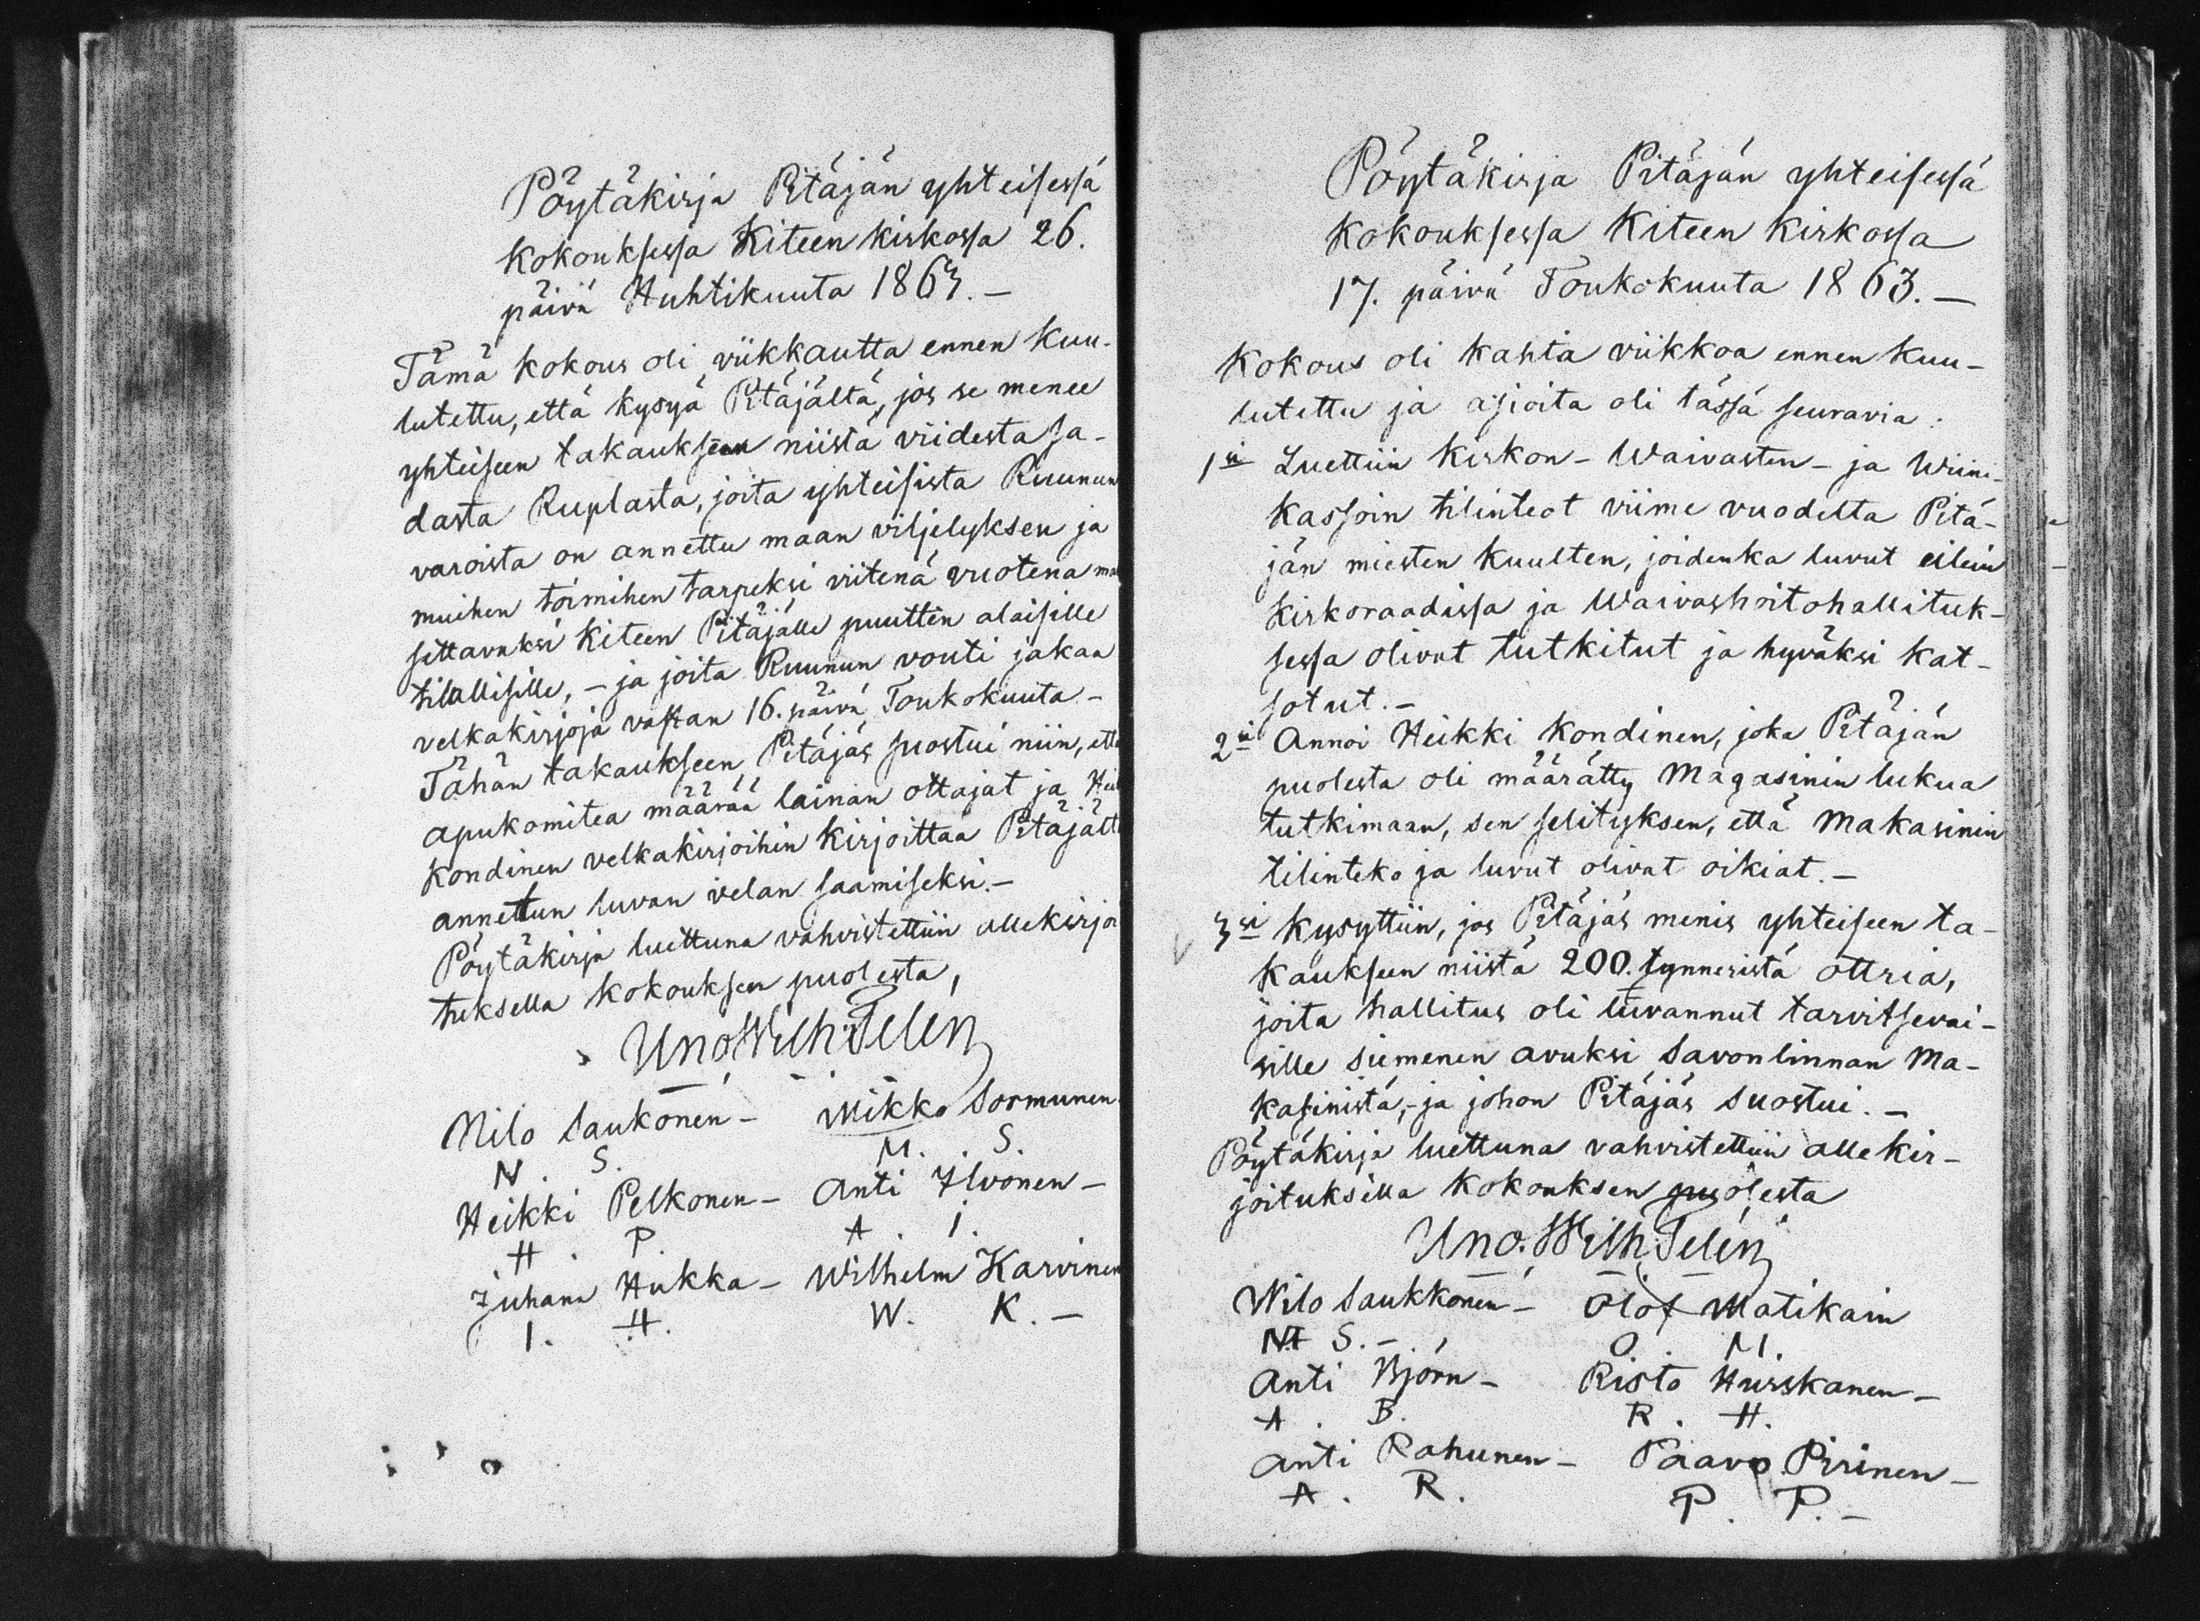 Pöytäkirja Pitäjän yhteisessä
kokouksessa Kiteen kirkossa 26.
päivä Huhtikuuta 1863. –
Tämä kokous oli viikkautta ennen kuu-
lutettu, että kysyä Pitäjältä, jos se menee
yhteiseen takaukseen niistä viidesta sa-
dasta Ruplasta, joita yhteisista Ruunun
varoista on annettu maan viljelyksen ja
muihen toimihen tarpeksi viitenä vuotena ma
settavaksi Kiteen Pitäjälle puutten alaisille
tilallisille, – ja joita Ruunun vouti jakaa
velkakirjoja vastan 16. päivä Toukokuuta –
Tähän takaukseen Pitäjäs suostui niin, että
apukomitea määrää lainan ottajat ja Heik
Kondinen velkakirjoihin kirjoittaa Pitäjältä
annettun luvan velan saamiseksi. –
Pöytäkirja luettuna vahvistettiin allekirjoi
tuksella kokouksen puolesta,
Uno Wilh: Telén
Nilo Saukonen – Mikko Sormunen
N. S. M. S.
Heikki Pelkonen – Anti Ilvonen –
H. P. A. I.
Juhana Hukka – Wilhelm Karvinen
I. H. W. K. –
Pöytäkirja Pitäjän yhteisessä
kokouksessa Kiteen kirkossa
17. päivä Toukokuuta 1863. –
Kokous oli kahta viikkoa ennen kuu-
lutettu ja asioita oli tässä seuravia:
1si Luettiin kirkon – Waivasten – ja Wiini-
kassoin tilinteot viime vuodelta Pitä-
jän miesten kuulten, joidenka luvut eilein
kirkoraadissa ja Waivashoitohallituk-
sessa olivat tutkitut ja hyväksi kat-
sotut. –
2si Annoi Heikki Kondinen, joka Pitäjän
puolesta oli määrätty Magasinin lukua
tutkimaan, sen selityksen, että Makasinin
tilinteko ja luvut olivat oikiat. –
3si kysyttiin, jos Pitäjäs menis yhteiseen ta-
kaukseen niistä 200. tynneristä ottria,
joita hallitus oli luvannut tarvitsevai-
sille siemenen avuksi Savonlinnan Ma-
kasinistä, – ja johon Pitäjäs suostui. –
Pöytäkirja luettuna vahvistettiin allekir-
joituksella kokouksen puolesta
Uno. Wilh: Telén
Nilo Saukkonen – Olof Matikain
N. S. – O. M.
Anti Björn – Risto Hirskanen –
A. B. R. H.
Anti Rahunen – Paavo Pirinen –
A. R. P. P. –